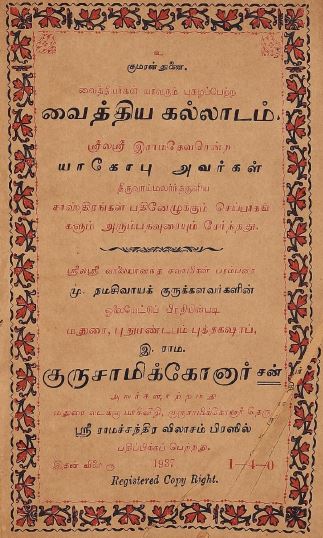 உ
குமரன் துணை.
வைத்தியர்கள் யாவரும் புகழப்பெற்ற
வைத்திய கல்லாடம்.
ஸ்ரீலஸ்ரீ இராமதேவரென்ற
யாகோபு அவர்கள்
திருவாய்மலர்ந்தருளிய
சாஸ்திரங்கள் பதினேழுக்கும் செய்பாகங்
களும் அரும்பதவுரையும் சேர்ந்தது.
ஸ்ரீலஸ்ரீ பரம்பரை
மு. நமசிவாயக் குருக்களவர்களின்
ஓலையேட்டுப் பிரதியின்படி
மதுரை, புதுமண்டபம் புத்தகஷாப்,
இ. ராம.
குருசாமிக்கோனார் சன்
அவர்களாற்றமது
மதுரை வடக்கு மாசிவீதி, குருசாமிக்கோனார் தெரு
ஸ்ரீ ராமச்சந்திர விலாசம் பிரஸில்
பதிப்பிக்கப் பெற்றது.
இதன் விலை ரூ 1937 1-4-0
Registered Copy Right.